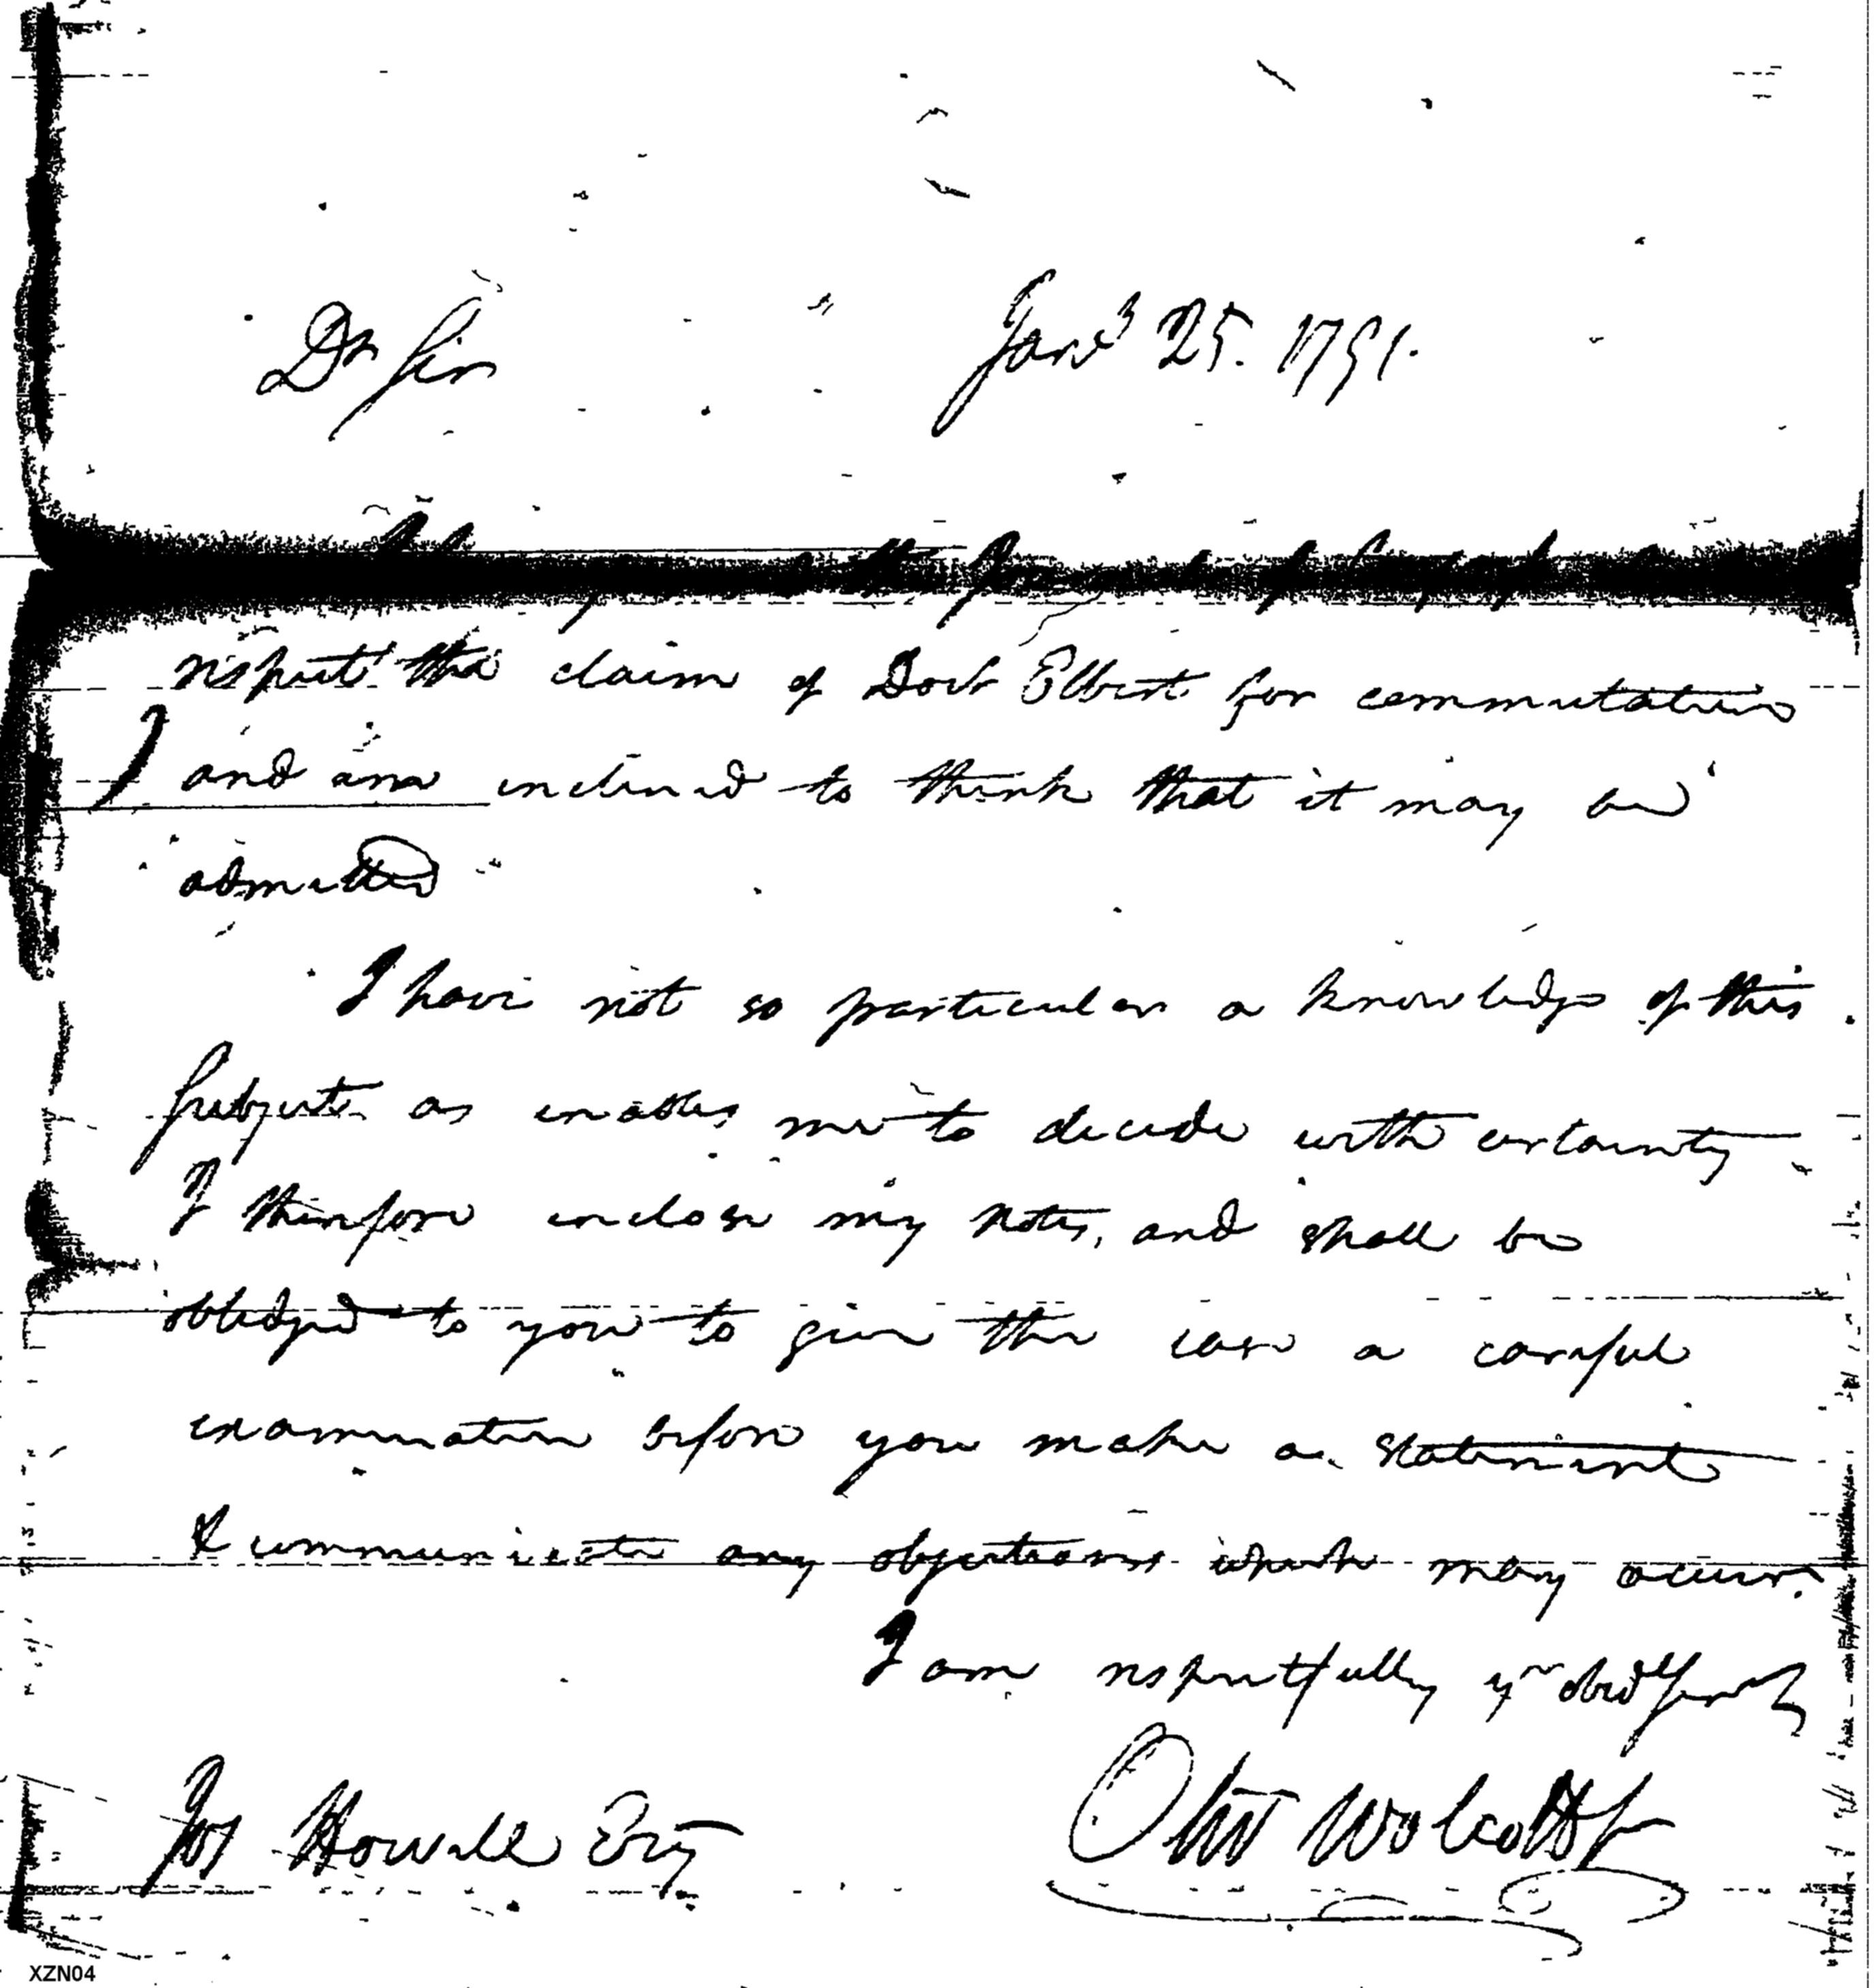 Dr Sir
Jany 25. 1791.
respect the claim of Doct Elbert for commutation
and am inclined to think that it may be
admitted
I have not so particular a knowledge of this
subject as enables me to decide with certainty
I therefore inclose my notes, and shall be
obledged to you to give the case a careful
examination before you make a statement
& communicate any objections which may occur.
I am respectfully yr obed Servt
Jos Howell Esq
Oliv Wolcott Jr
XZN04